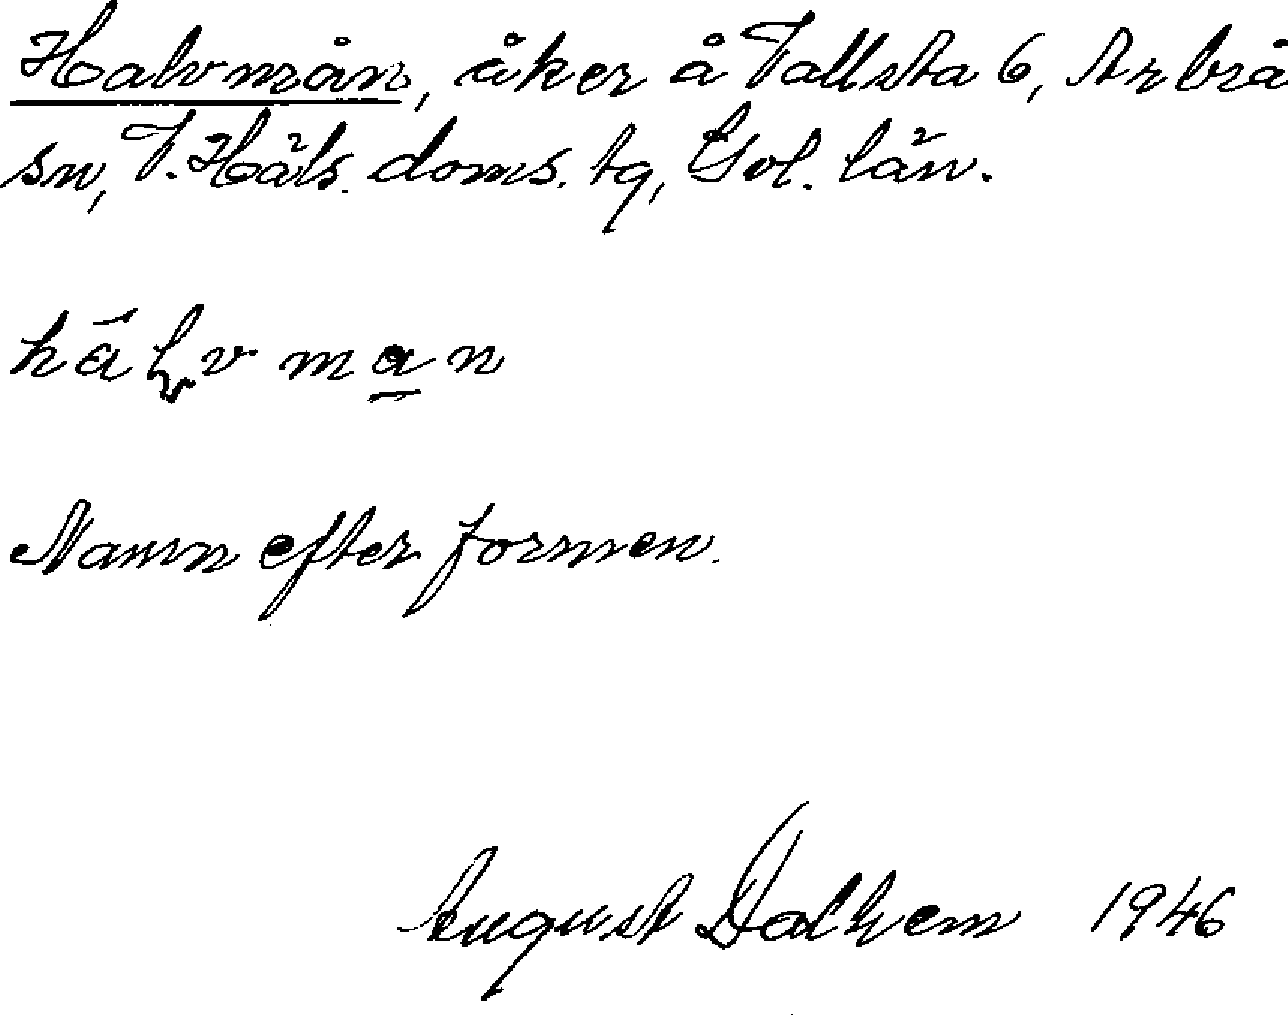 Halvmån, åker å Vallsta 6, Arbrå
sn, V. Häls. doms. tg, Gvl. län.
hālv man
Namn efter formen.
August Dalhem 1946